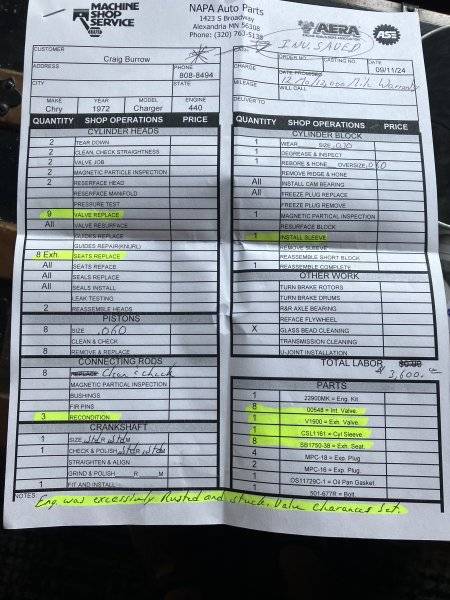 MACHINE
SHOP
SERVICE
NAPA Auto Parts
1423 S Broadway
Alexandria MN 56308
Phone: (320) 763-5138
AERA
ASE
INV. SAVED
CUSTOMER
Craig Burrow
ADDRESS
PHONE
808-8494
CITY
STATE
CASH
ORDER NO.
CASTING NO.
DATE
09/11/24
CHARGE
DATE PROMISED
MILEAGE
12 Mo/12,000 Mile Warranty
WILL CALL
DELIVER TO
MAKE YEAR MODEL ENGINE
Chry 1972 Charger 440
QUANTITY SHOP OPERATIONS PRICE
CYLINDER HEADS
2 TEAR DOWN
2 CLEAN, CHECK STRAIGHTNESS
2 VALVE JOB
2 MAGNETIC PARTICLE INSPECTION
2 RESERFACE HEAD
RESERFACE MANIFOLD
PRESSURE TEST
9 VALVE REPLACE
All VALVE RESURFACE
GUIDES REPLACE
GUIDES REPAIR(KNURL)
8 Exh. SEATS REPLACE
All SEATS REFACE
All SEALS REPLACE
All SEALS INSTALL
LEAK TESTING
2 REASSEMBLE HEADS
PISTONS
8 SIZE .060
CLEAN & CHECK
8 REMOVE & REPLACE
CONNECTING RODS
8 REPLACE Clean & check
MAGNETIC PARTICAL INSPECTION
BUSHINGS
FIR PINS
3 RECONDITION
CRANKSHAFT
1 SIZE Std R Std M
1 CHECK & POLISH Std R, Std M
STRAIGHTEN & ALIGN
GRIND & POLISH R M
1 FIT AND INSTALL
QUANTITY SHOP OPERATIONS PRICE
CYLINDER BLOCK
1 WEAR SIZE .030
1 DEGREASE & INSPECT
1 REBORE & HONE OVERSIZE .060
REMOVE RIDGE & HONE
All INSTALL CAM BEARING
All FREEZE PLUG REPLACE
FREEZE PLUG REMOVE
1 MAGNETIC PARTICAL INSPECTION
RESURFACE BLOCK
1 INSTALL SLEEVE
REMOVE SLEEVE
REASSEMBLE SHORT BLOCK
1 REASSEMBLE COMPLETE
OTHER WORK
TURN BRAKE ROTORS
TURN BRAKE DRUMS
R&R AXLE BEARING
REFACE FLYWHEEL
X GLASS BEAD CLEANING
TRANSMISSION CLEANING
U-JOINT INSTALLATION
TOTAL LABOR $0.00
$ 3,600.
PARTS
1 22900MK = Eng. Kit
8 00548 = Int. Valve.
1 V1900 = Exh. Valve.
1 CSL1161 = Cyl Sleeve.
8 SB1750-38 = Exh. Seat.
4 MPC-18 = Exp. Plug
2 MPC-16 = Exp. Plug.
1 OS11729C-1 = Oil Pan Gasket
1 501-677R = Bolt.
NOTES
Eng. was excessivly Rusted and stuck. Valve Clearances Set.